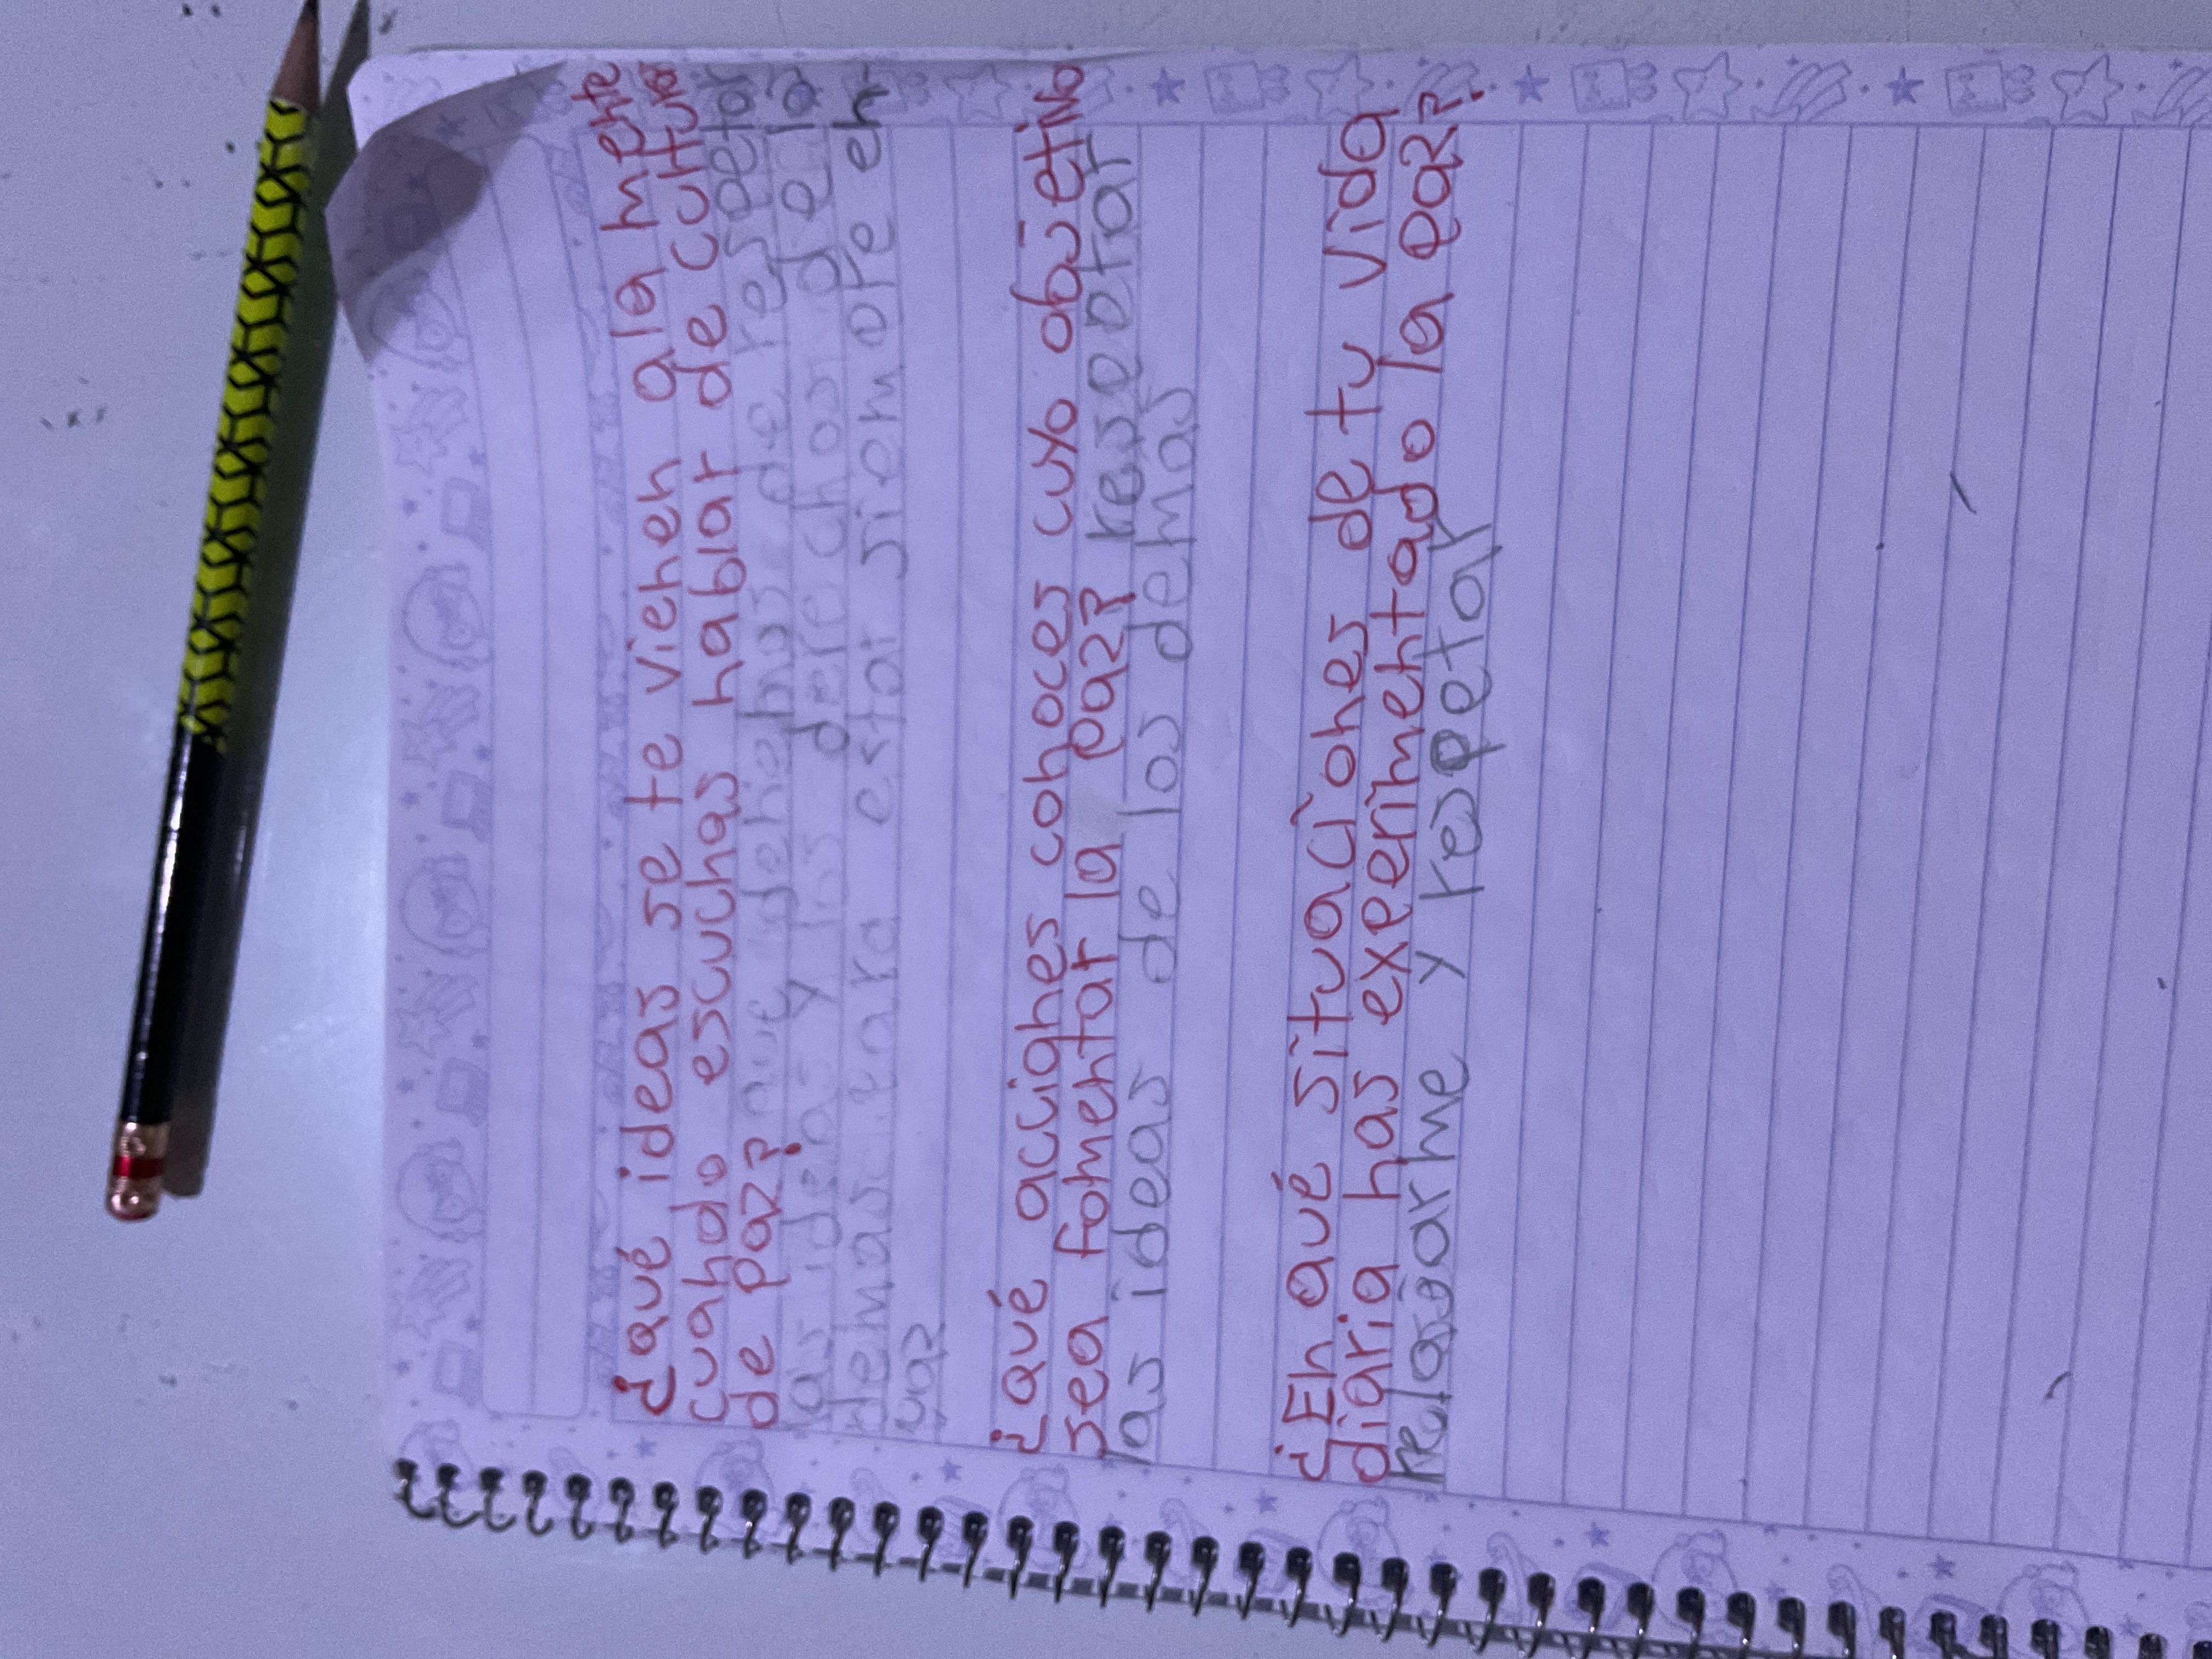 ¿qué ideas se te vienen ala mente
cuando escuchas hablar de cultura
de paz? que debemos de respetar
las ideas y los derechos de la
demas para estar siempre en
paz
¿qué acciones conoces cuyo objetivo
sea fomentar la paz? resepetar
las ideas de los demas
¿En qué situaciones de tu vida
diaria has experimentado la paz?
relasjarme y respetar